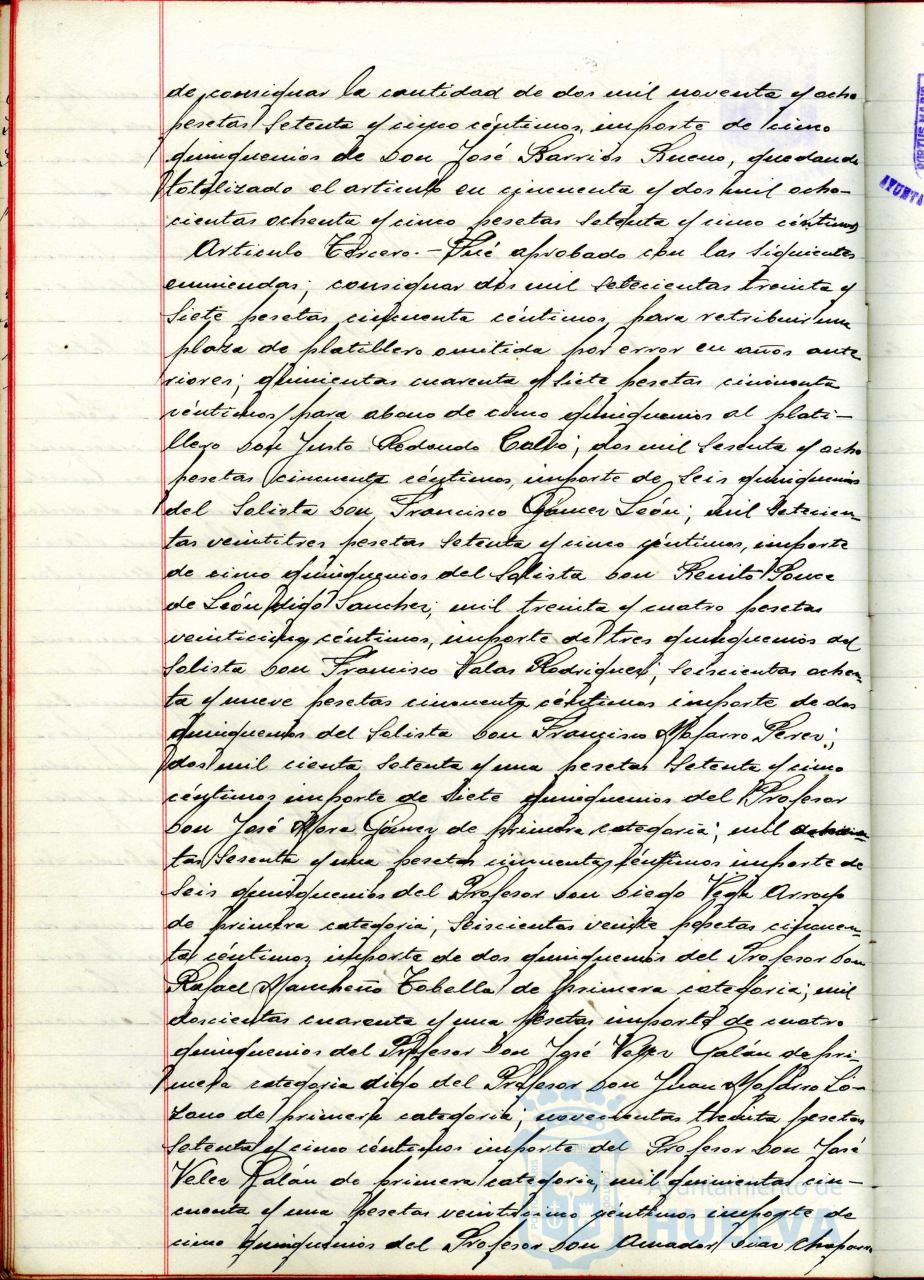 de consignar la cantidad de dos mil noventa y ocho
pesetas Setenta y cinco céntimos, importe de cinco
quinquenios de Don José Barrios Bueno, quedando
totalizado el articulo en cincuenta y dos mil ocho-
cientas ochenta y cinco pesetas Setenta y cinco céntimos
Articulo Tercero.- Fué aprobado con las Siguientes
enmiendas; consignar dos mil Setecientas treinta y
Siete pesetas cincuenta céntimos, para retribuir una
plaza de platillero omitida por error en años ante
riores; quinientas cuarenta y Siete pesetas cincuenta
céntimos para abono de cinco quinquenios al plati-
llero Don Justo Redondo Calvo; dos mil Sesenta y ocho
pesetas cincuenta céntimos, importe de Seis quinquenios
del Solista Don Francisco Gómez León; mil Setecien
tas veintitres pesetas Setenta y cinco céntimos, importe
de cinco quinquenios del Solista Don Benito Ponce
de León digo Sanchez; mil treinta y cuatro pesetas
veinticinco céntimos, importe de tres quinquenios del
Solista Don Francisco Salas Rodriguez; Seiscientas ochen
ta y nueve pesetas cincuenta céntimos importe de dos
quinquenios del Solista Don Francisco Mojarro Perez;
dos mil cienta Setenta y una pesetas Setenta y cinco
céntimos importe de Siete quinquenios del Profesor
Don José Mora Gómez de primera categoria; mil ochocien
tas Sesenta y una pesetas cincuenta céntimos importe de
Seis quinquenios del Profesor Don Diego Vega Arroyo
de primera categoria, Seiscientas veinte pesetas cincuen
ta céntimos importe de dos quinquenios del Profesor Don
Rafael Mancheño Tobella de primera categoria; mil
doscientas cuarenta y una pesetas importe de cuatro
quinquenios del Profesor Don José Velez Galán de pri-
mera categoria digo del Profesor Don Juan Mojarro Lo-
zano de primera categoria; novecientas treinta pesetas
Setenta y cinco céntimos importe del Profesor Don José
Velez Galán de primera categoria, mil quinientas cin-
cuenta y una pesetas veinticinco céntimos importe de
cinco quinquenios del Profesor Don Amador Diaz Chaparro
Ayuntamiento de
HUELVA